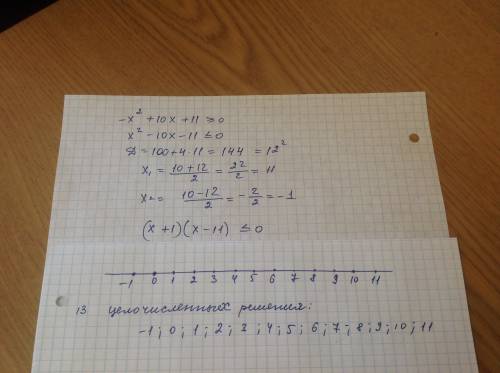 -x² + 10x + 11 ≥ 0
x² - 10x - 11 ≤ 0
D = 100 + 4·11 = 144 = 12²
x₁ = (10+12)/2 = 22/2 = 11
x₂ = (10-12)/2 = -2/2 = -1
(x+1)(x-11) ≤ 0
-1 0 1 2 3 4 5 6 7 8 9 10 11
13 целочисленных решения:
-1; 0; 1; 2; 3; 4; 5; 6; 7; 8; 9; 10; 11